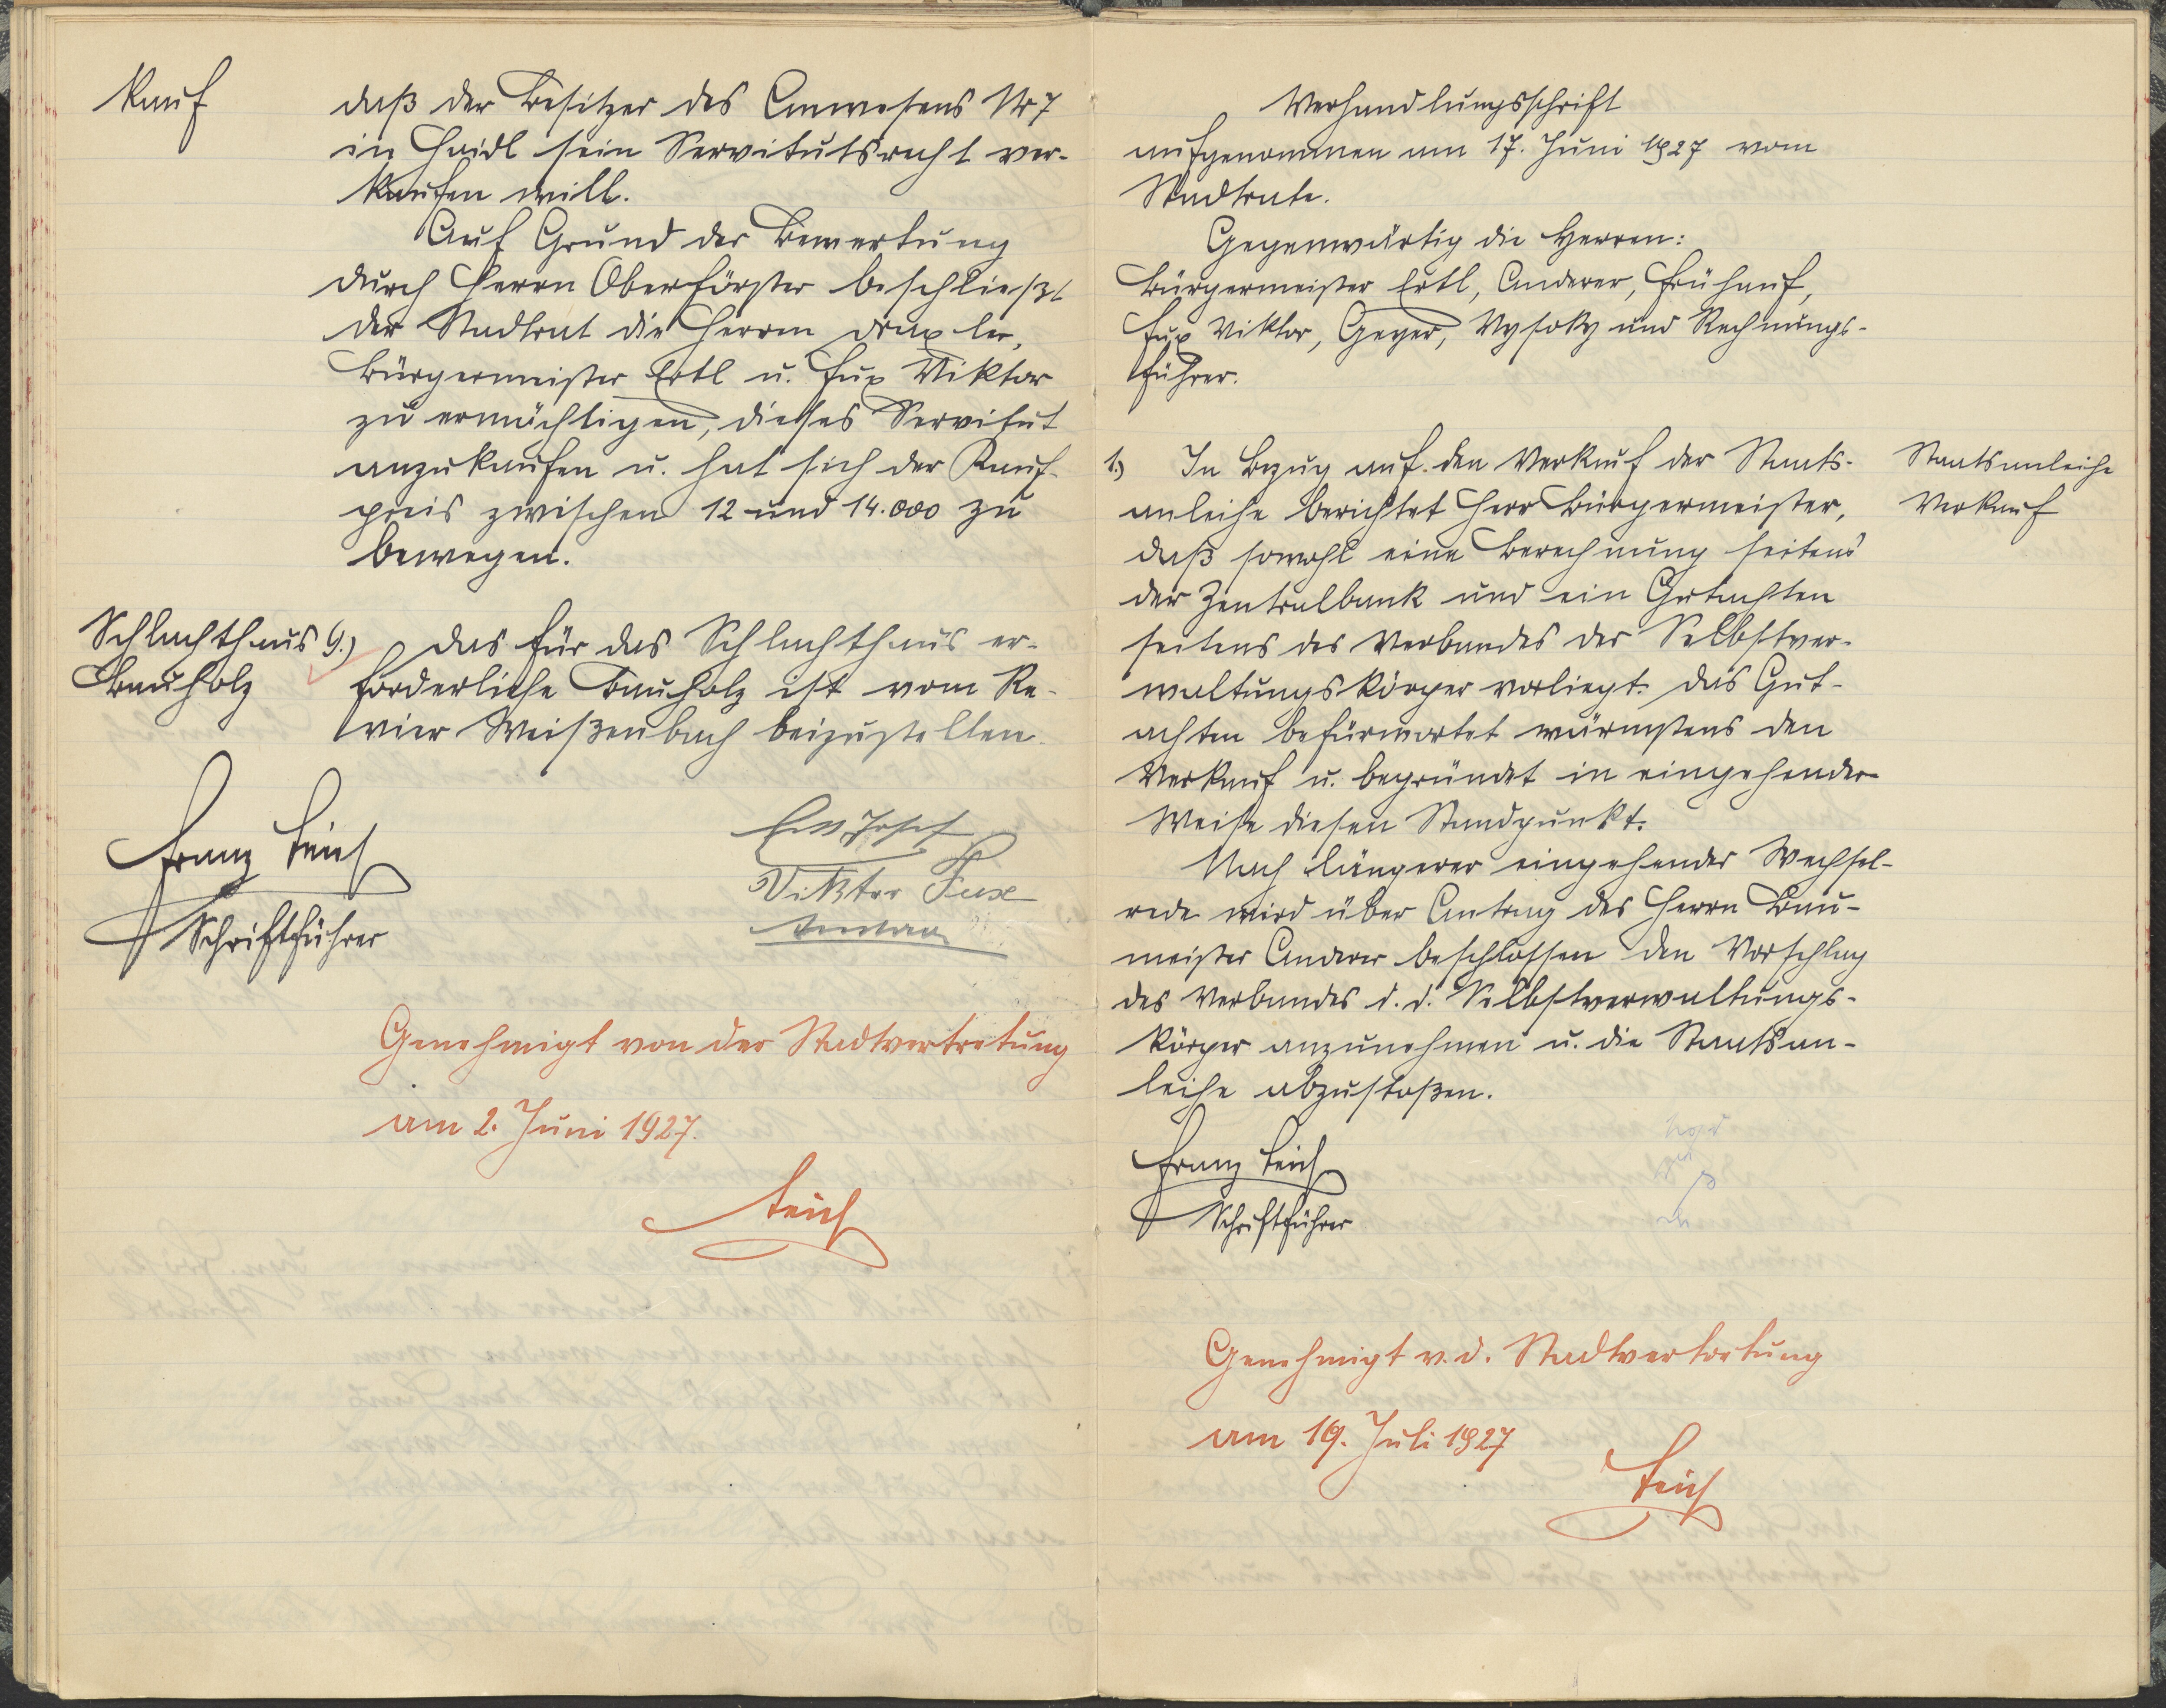 Kauf
daß der Besitzer des Anwesens Nr 7
in Haidl sein Servitutsrecht ver-
kaufen will.
Auf Grund der Bewertung
durch Herrn Oberförster beschließt
der Stadtrat die Herren Draxler,
Bürgermeister Ertl u. Fux Viktor
zu ermächtigen, dieses Servitut
anzukaufen u. hat sich der Kauf-
preis zwischen 12 und 14.000 zu
bewegen.
Schlachthaus
Bauholz
9.) Das für das Schlachthaus er-
forderliche Bauholz ist vom Re-
vier Weißenbach beizustellen.
Franz Teich
Schriftführer
Ertl Josef
Viktor Fux
Genehmigt von der Stadtvertretung
am 2. Juni 1927.
Teich
Verhandlungsschrift
aufgenommen am 17. Juni 1927 vom
Stadtrate.
Gegenwärtig die Herren:
Bürgermeister Ertl, Anderer, Frühauf,
Fux Viktor, Geyer, Vysoky und Rechnungs-
führer.
1.) In Bezug auf den Verkauf der Staats-
anleihe berichtet Herr Bürgermeister,
daß sowohl eine Berechnung seitens
der Zentralbank und ein Gutachten
seitens des Verbandes der Selbstver-
waltungskörper vorliegt. Das Gut-
achten befürwortet wärmstens den
Verkauf u. begründet in eingehender
Weise diesen Standpunkt.
Nach längerer eingehender Wechsel-
rede wird über Antrag des Herrn Bau-
meister Anderer beschlossen den Vorschlag
des Verbandes d. d. Selbstverwaltungs-
körper anzunehmen u. die Staatsan-
leihe abzustoßen.
Staatsanleihe
Verkauf
Franz Teich
Schriftführer
Genehmigt v. d. Stadtvertretung
am 19. Juli 1927
Teich